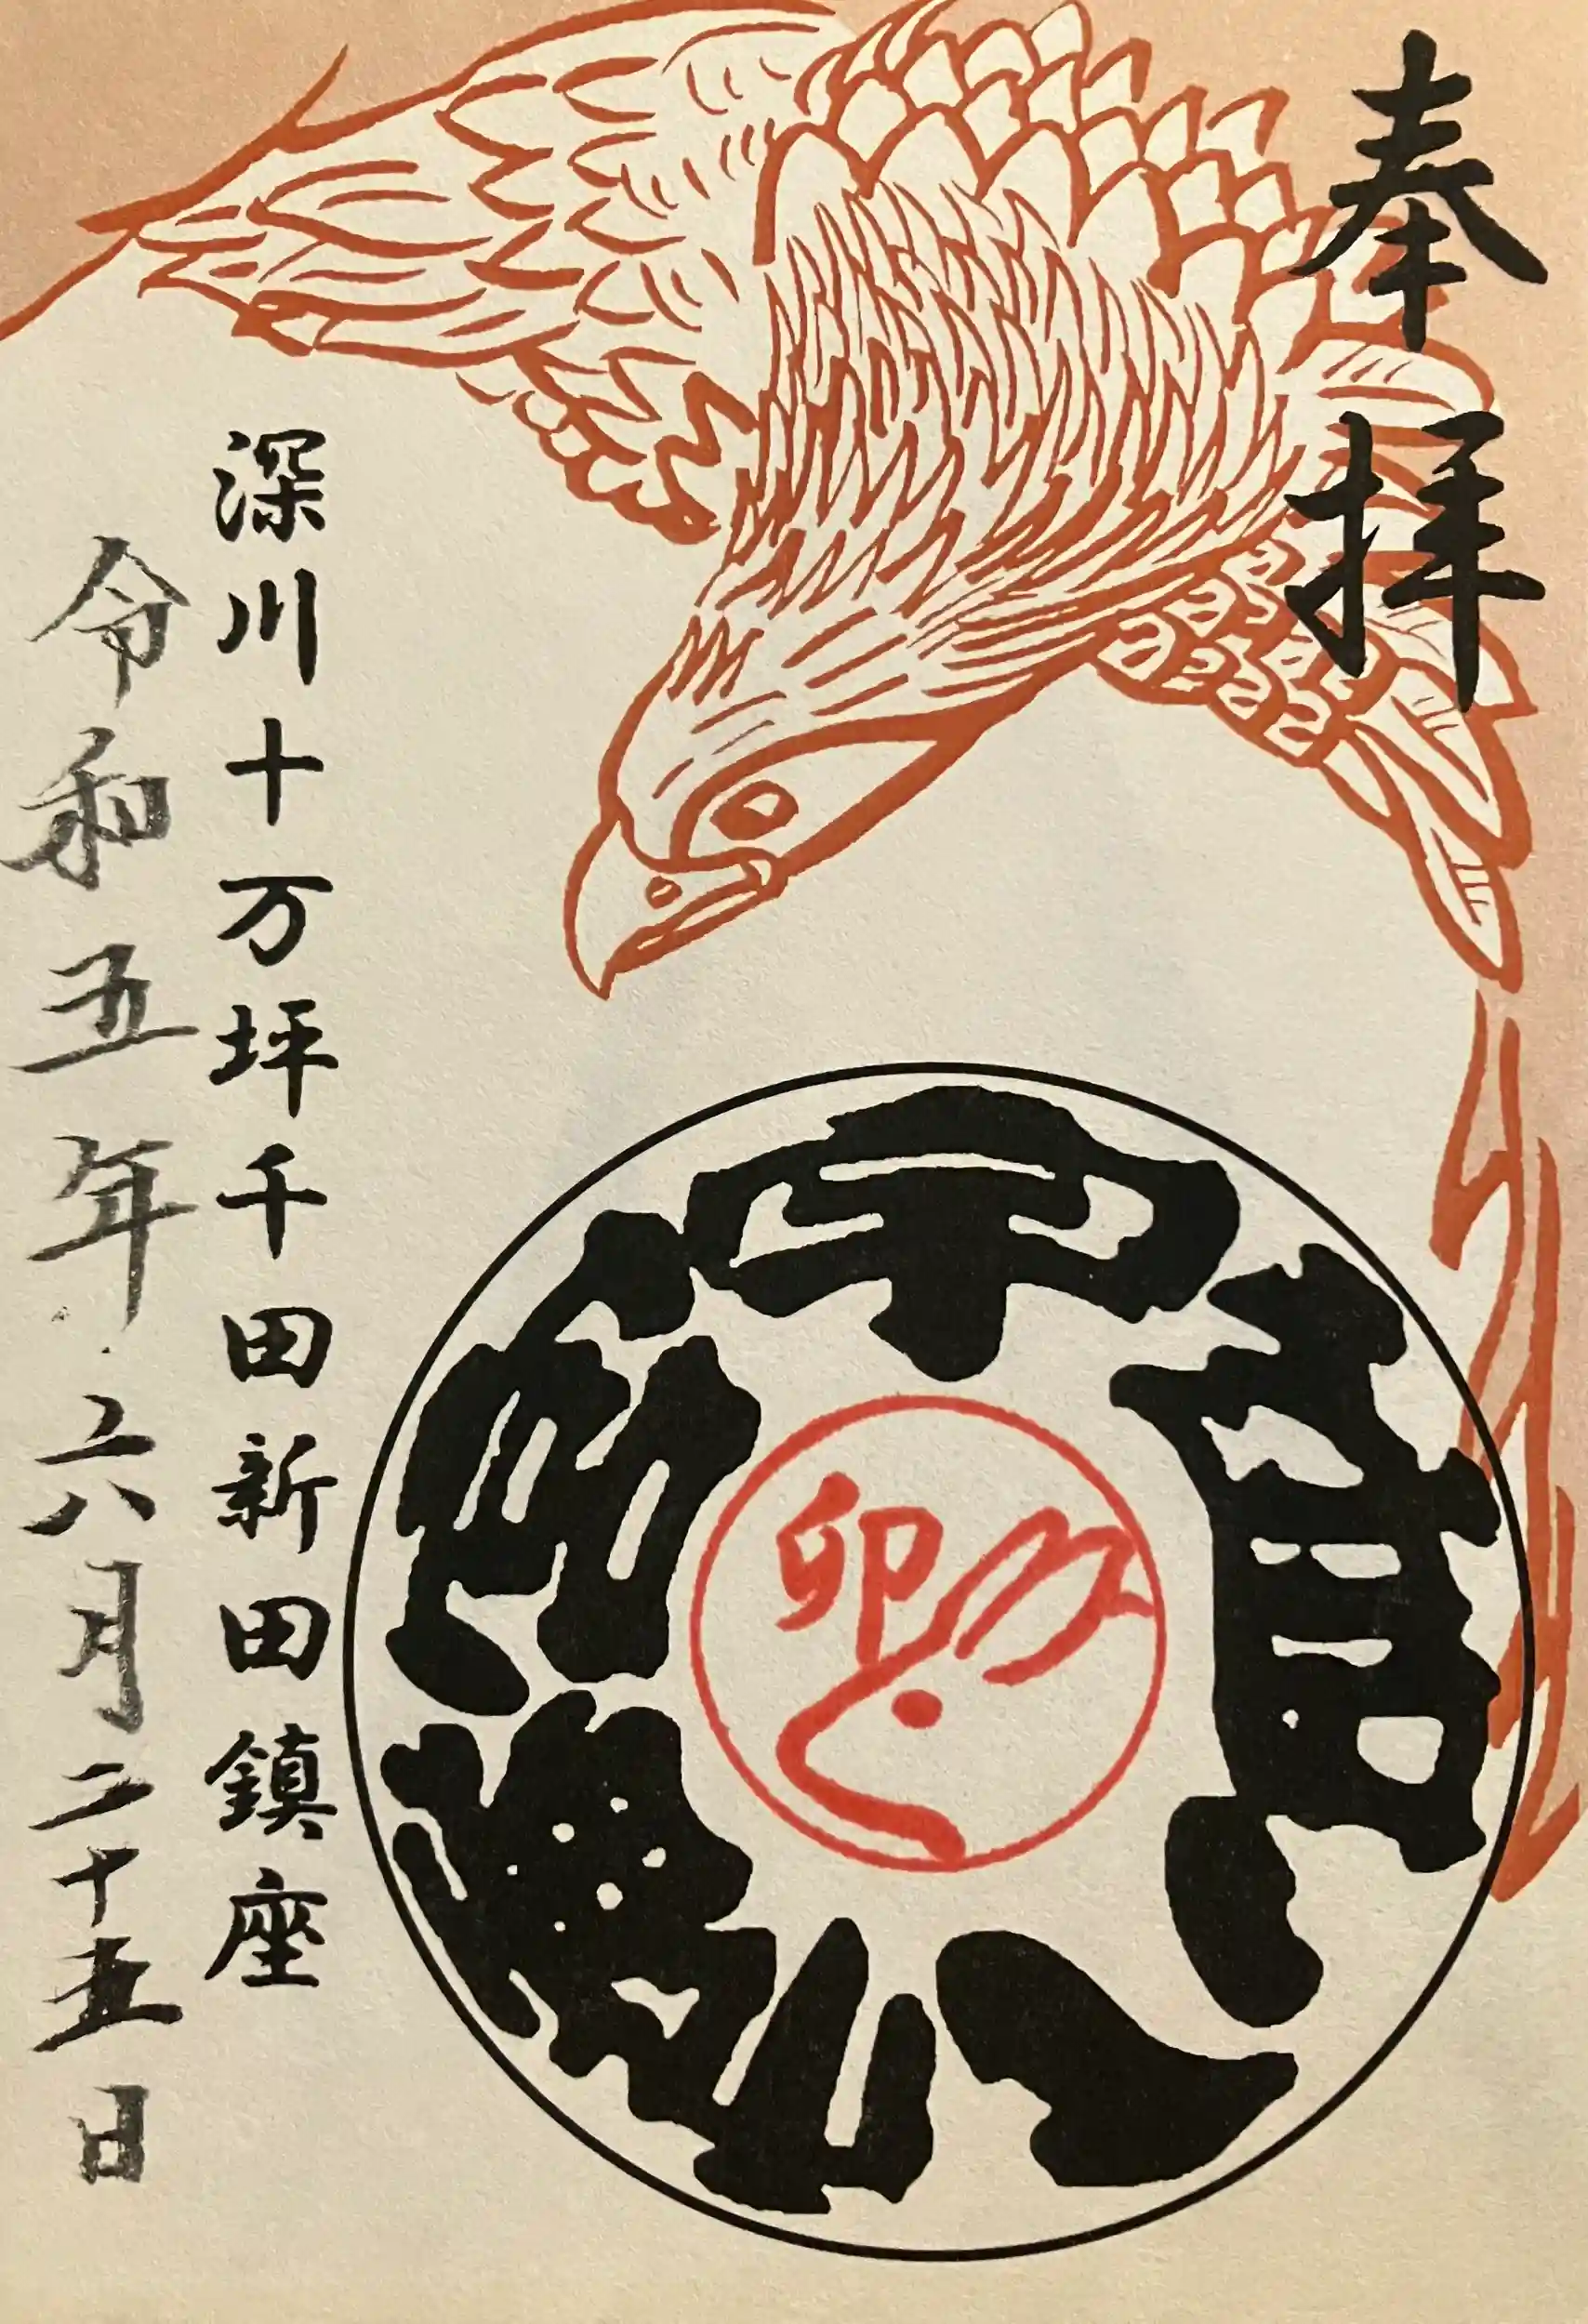 奉拝
宇賀八幡宮
卯
深川十万坪千田新田鎮座
令和五年六月二十五日